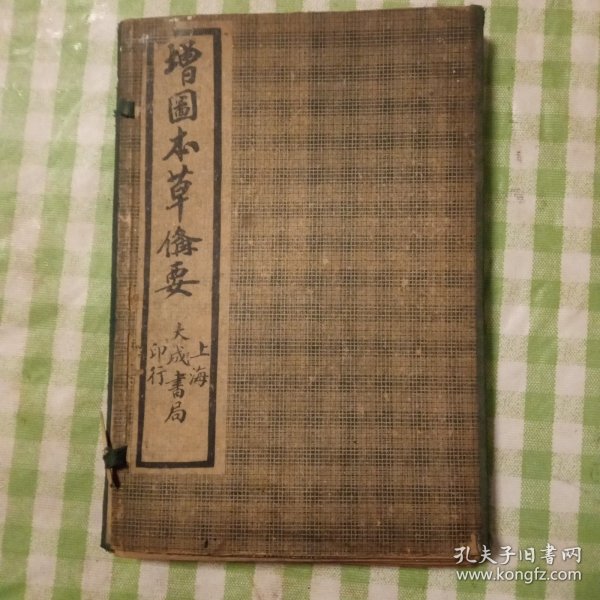 增圖本草備要
上海
大成書局
印行
孔夫子旧書网
www.kongfz.com